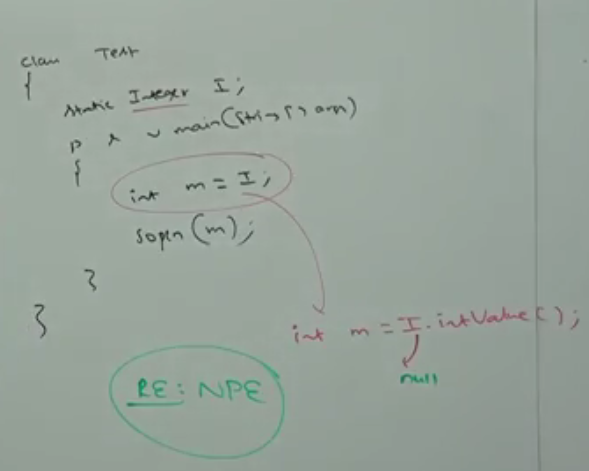 class Test
{
static Integer I;
p s v main(String[] args)
{
int m = I;
sopln(m);
}
}
int m = I.intValue();
null
RE: NPE